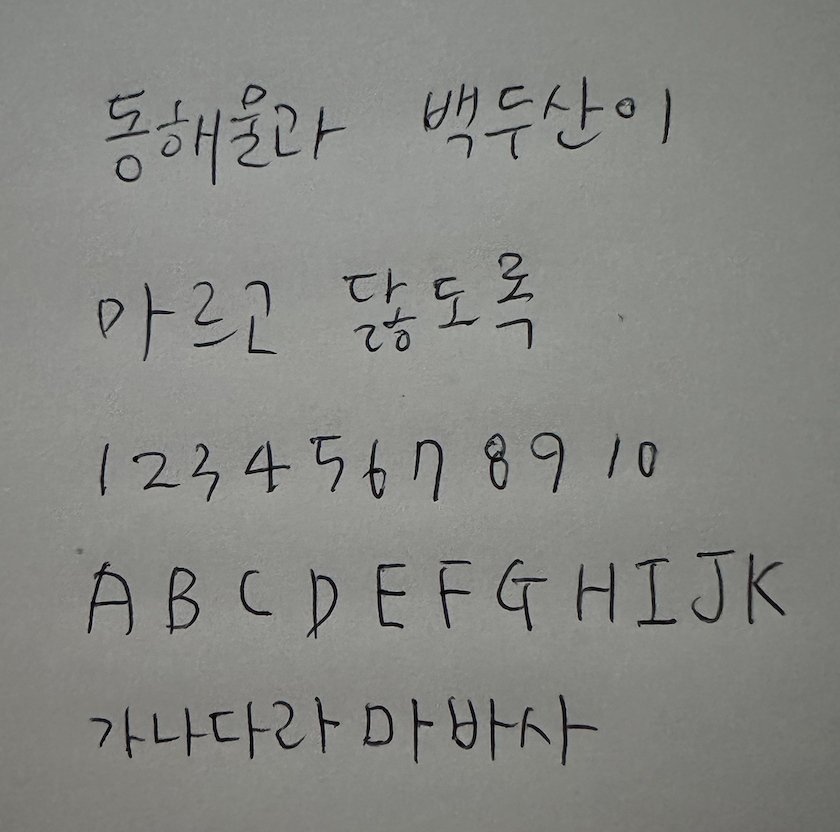 동해울과 백두산이
마르고 닳도록
1 2 3 4 5 6 7 8 9 10
A B C D E F G H I J K
가나다라마바사